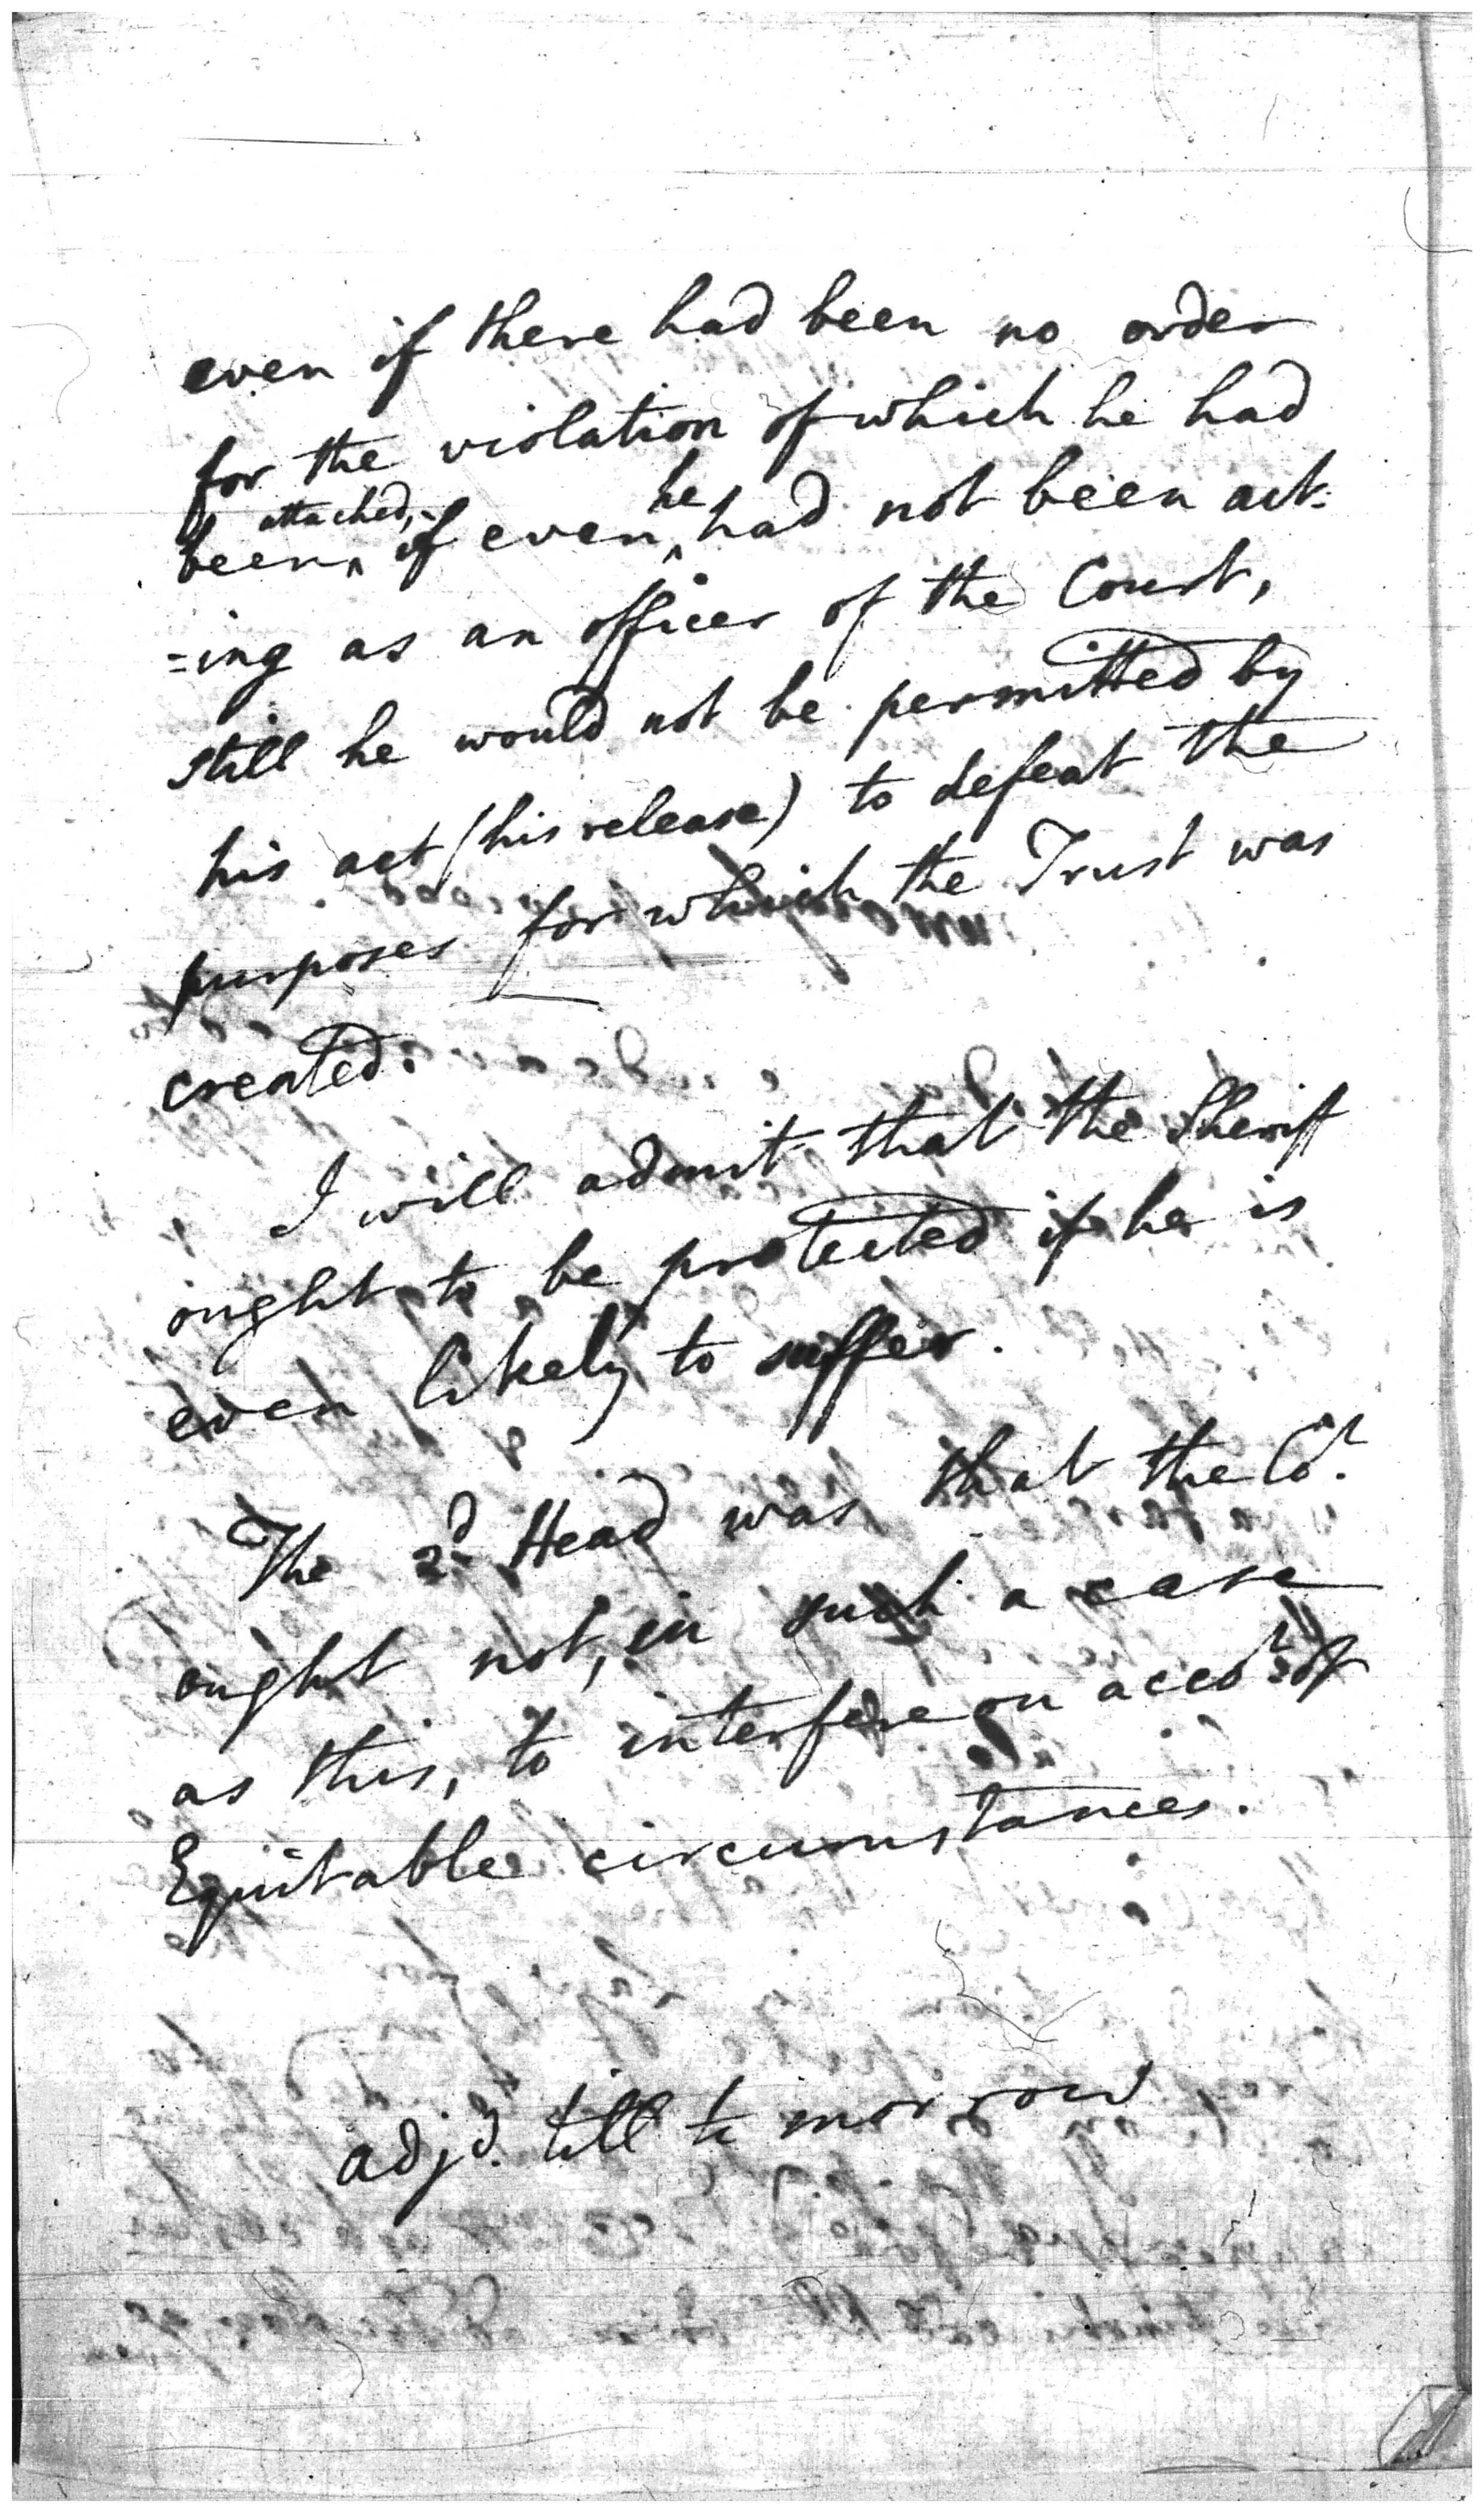 even if there had been no order
for the violation of which he had
been attached, if even he had not been act-
=ing as an officer of the Court,
still he would not be permitted by
his act (his release) to defeat the
purposes for which the Trust was
created.
I will admit that the Sheriff
ought to be protected if he is
even likely to suffer.
The 2d Head was that the Cot.
ought not, in such a case
as this, to interfere on accot. of
Equitable circumstances.
adjd. till to morrow